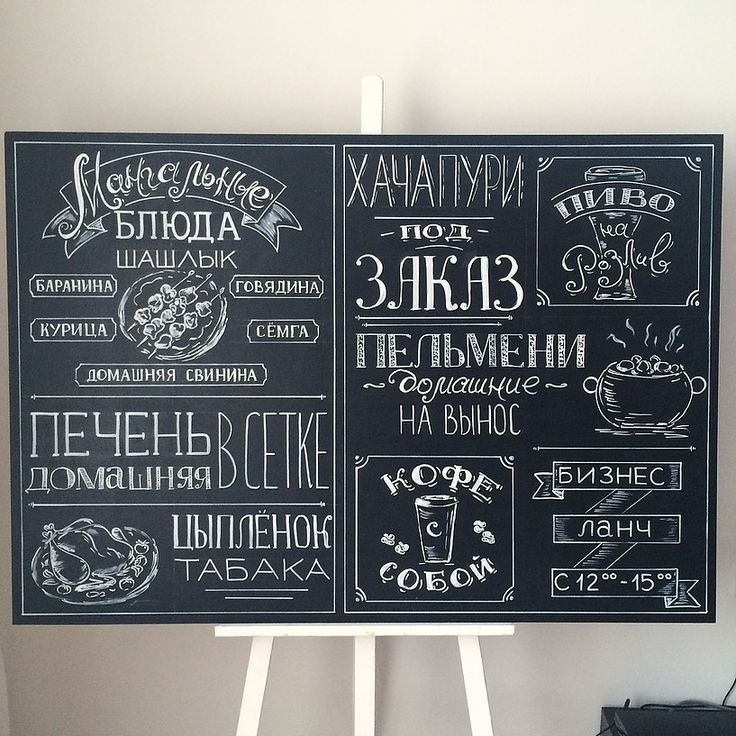 Мангальные
БЛЮДА
ШАШЛЫК
БАРАНИНА
ГОВЯДИНА
КУРИЦА
СЁМГА
ДОМАШНЯЯ СВИНИНА
ПЕЧЕНЬ
ДОМАШНЯЯ
В СЕТКЕ
ЦЫПЛЁНОК
ТАБАКА
ХАЧАПУРИ
- ПОД -
ЗАКАЗ
ПИВО
на
Розлив
ПЕЛЬМЕНИ
~ домашние ~
НА ВЫНОС
КОФЕ
С
СОБОЙ
БИЗНЕС
ЛАНЧ
С 12°° - 15°°